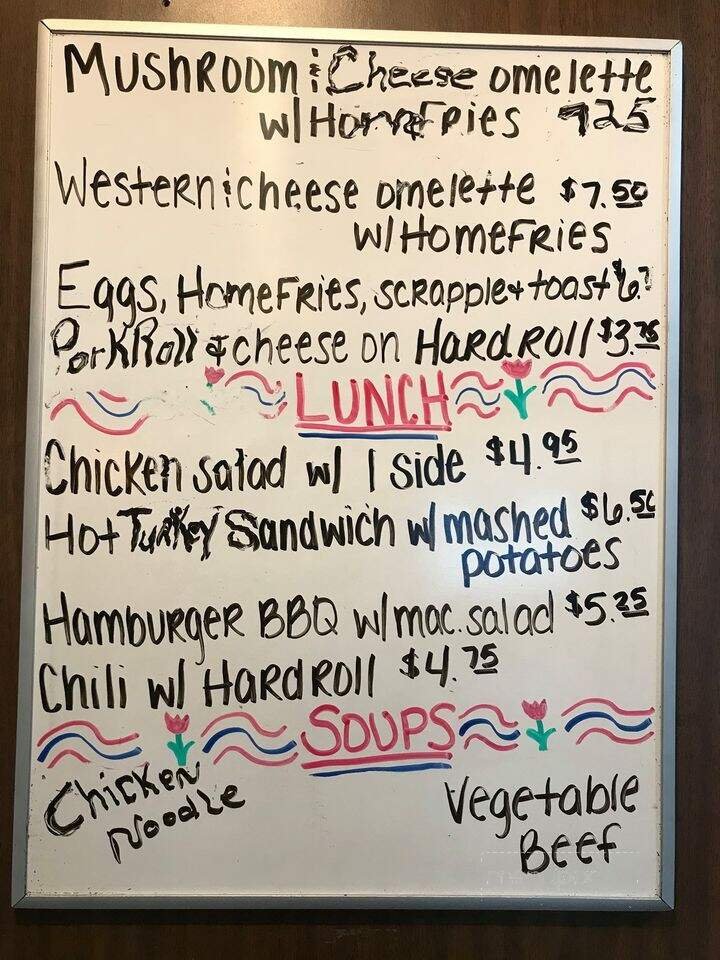 MUSHROOM & Cheese omelette
w/ HomeFRies 725
WesteRn & cheese omelette $7.50
W/ HOMEFRIES
Eggs, HomeFRies, SCRAPPLE + toast $6.
PorkRoll & cheese on HARD ROll $3.75
LUNCH
Chicken salad w/ 1 side $4.95
Hot Turkey Sandwich w/ mashed $6.50
potatoes
HambuRgeR BBQ w/ mac. salad $5.25
Chili w/ HARD ROll $4.75
SOUPS
Chicken Vegetable
Noodle Beef